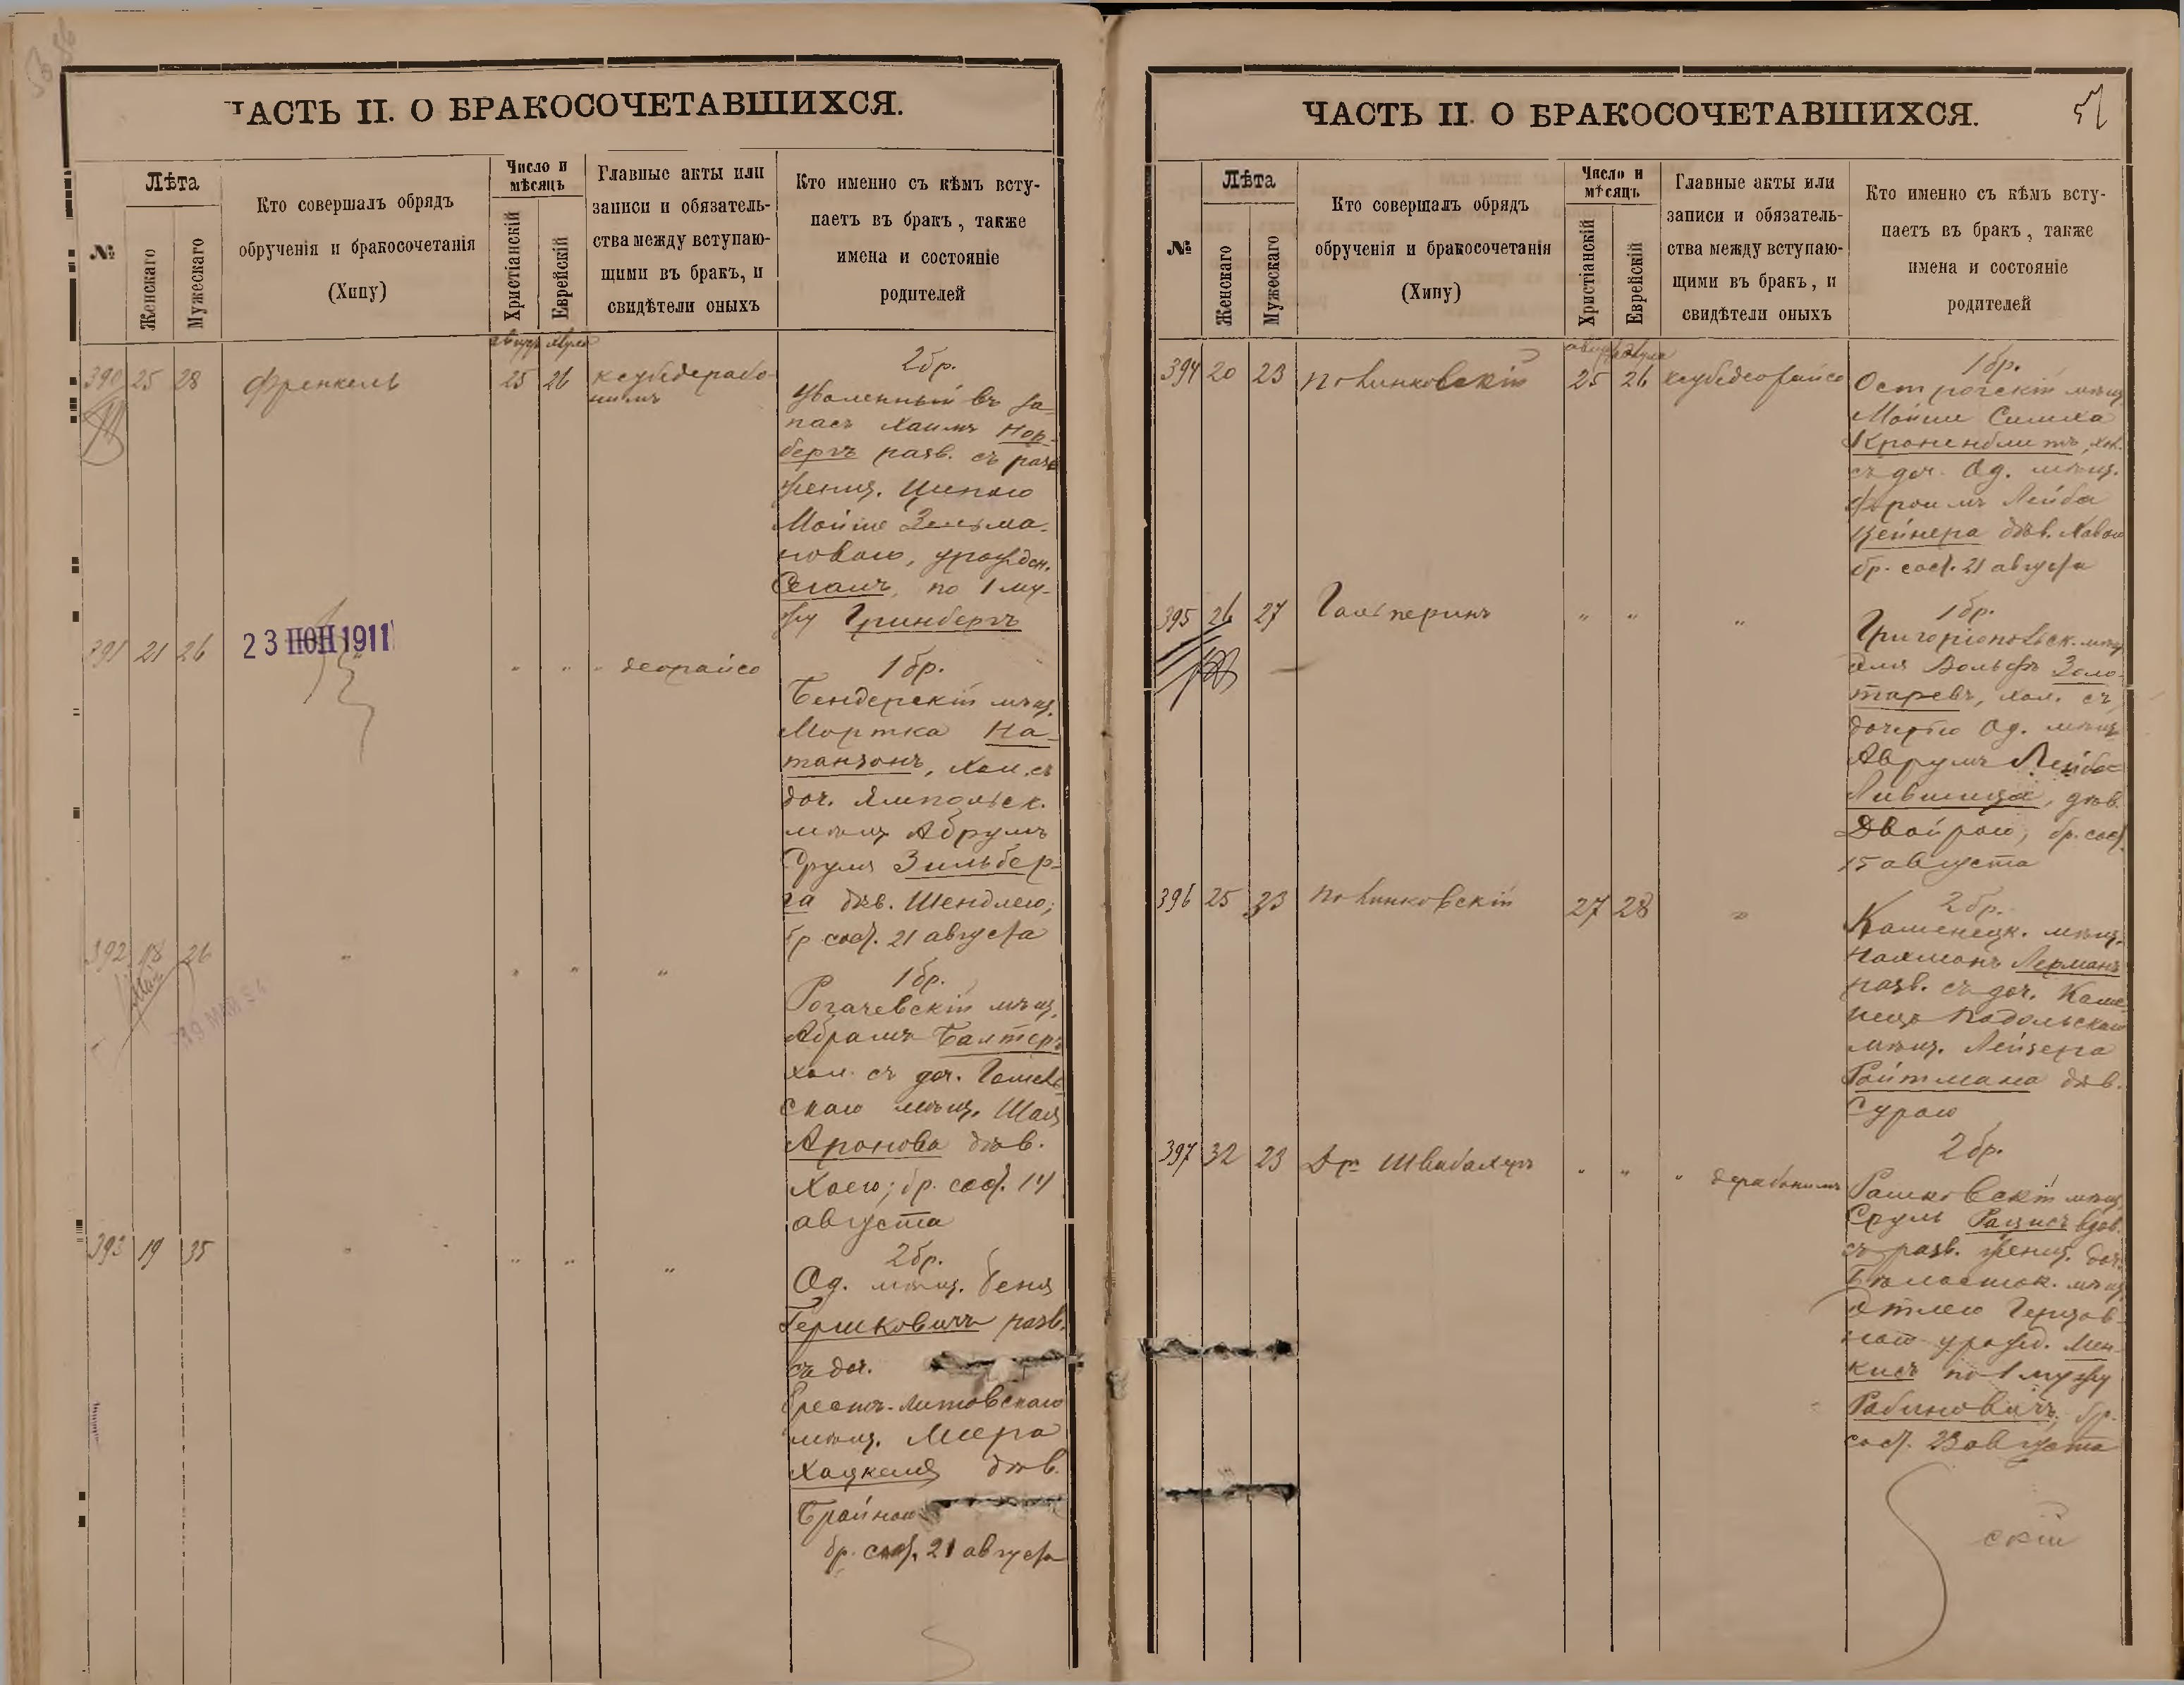 ЧАСТЬ II. О БРАКОСОЧЕТАВШИХСЯ.
№
Лѣта
Женскаго
Мужескаго
Кто совершалъ обрядъ
обрученія и бракосочетанія
(Хипу)
Число и
мѣсяцъ
Христіанскій
Еврейскій
Главные акты или
записи и обязатель-
ства между вступаю-
щими въ бракъ, и
свидѣтели оныхъ
Кто именно съ кѣмъ всту-
паетъ въ бракъ, также
имена и состояніе
родителей
390 25 28 Френкель 25 26
2 бр.
Уволенный въ за-
пасъ Хаимъ Нор-
бергъ разв. съ разв
женщ. Ципою
Мойше Зельма-
новою, урожден.
Сегалъ, по 1 му-
жу Гринбергъ
391 21 26
23 ІЮН 1911
" " " деорайсо
1 бр.
Бендерскій мѣщ.
Мортка На-
танзонъ, хол. съ
доч. Ямпольск.
мѣщ. Абрумъ
Сруля Зильбер-
га дѣв. Шендлею;
бр. сост. 21 августа
392 18 26 " " " "
1 бр.
Рогачевскій мѣщ.
Абрамъ Балтеръ
хол. съ доч. Гомель
скаго мѣщ. Шая
Аронова дѣв.
Хаею; бр. сост. 14
августа
393 19 35 " " " "
2 бр.
Од. мѣщ. Беня
Гершковичъ разв.
съ доч.
Брестъ-Литовскаго
мѣщ. Меера
Хацкеля дѣв.
Брайною
бр. сост. 21 августа
ЧАСТЬ II. О БРАКОСОЧЕТАВШИХСЯ.
51
№
Лѣта
Женскаго
Мужескаго
Кто совершалъ обрядъ
обрученія и бракосочетанія
(Хипу)
Число и
мѣсяцъ
Христіанскій
Еврейскій
Главные акты или
записи и обязатель-
ства между вступаю-
щими въ бракъ, и
свидѣтели оныхъ
Кто именно съ кѣмъ всту-
паетъ въ бракъ, также
имена и состояніе
родителей
394 20 23 Полинковскій 25 26 ксубедеорайсо
1 бр.
Острогскій мѣщ.
Мойше Симха
Кроненблитъ, хол.
съ доч. Од. мѣщ.
Фроимъ Лейба
Вейнера дѣв. Хавою
бр. сост. 21 августа
395 26 27 Гальперинъ " " "
1 бр.
Григоріопольск. мѣщ
Вольфъ Золо-
таревъ, хол. съ
дочерью Од. мѣщ.
Аврумъ Лейба
Лившица, дѣв.
Двойрою, бр. сост.
15 августа
396 25 23 Полинковскій 27 28 "
2 бр.
Каменецк. мѣщ.
Нахманъ Лерманъ
разв. съ доч. Каме
нецъ Подольскаго
мѣщ. Лейзера
Ройтмана дѣв.
Сурою
397 32 23 Др. Швабахеръ " " " дерабонимъ
2 бр.
Рашковскій мѣщ.
Сруль Рацисъ вдов.
съ разв. женщ. доч.
Бѣлосток. мѣщ
Этлею Герцов-
ною урожд. Мен-
кисъ по 1 мужу
Рабиновичъ; бр.
сост. 23 августа
скій